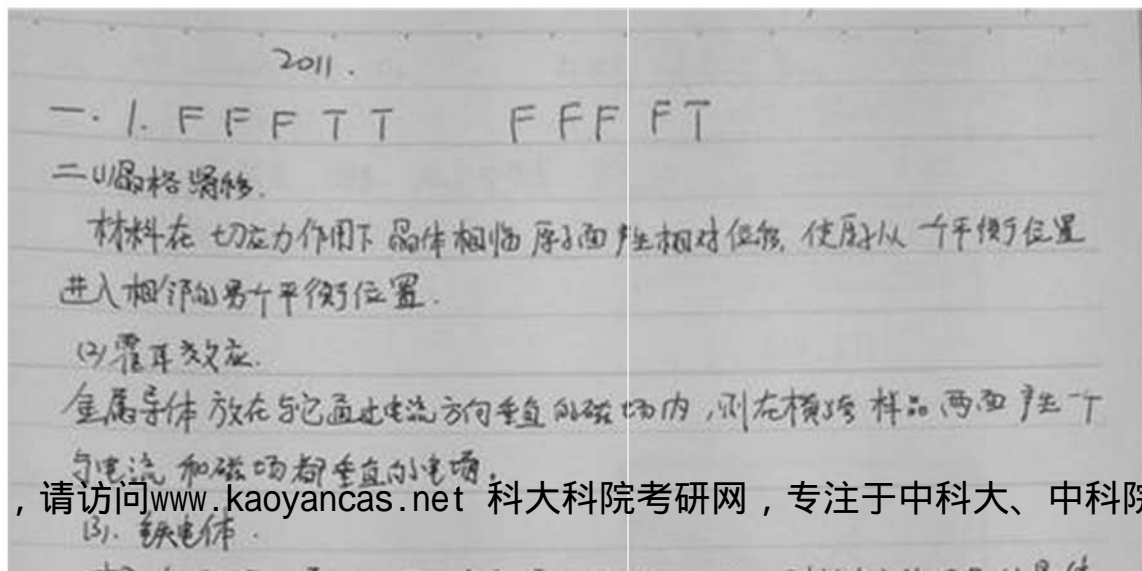 2011.
一. 1. F F F T T F F F F T
二(1)晶格滑移.
材料在切应力作用下晶体相临原子面产生相对位移, 使原子从一个平衡位置
进入相邻的另个平衡位置.
(2)霍耳效应.
金属导体放在与它通过电流方向垂直的磁场内,则在横跨样品两面产生一个
与电流和磁场都垂直的电场.
，请访问www.kaoyancas.net 科大科院考研网，专注于中科大、中科院
(3). 铁电体.